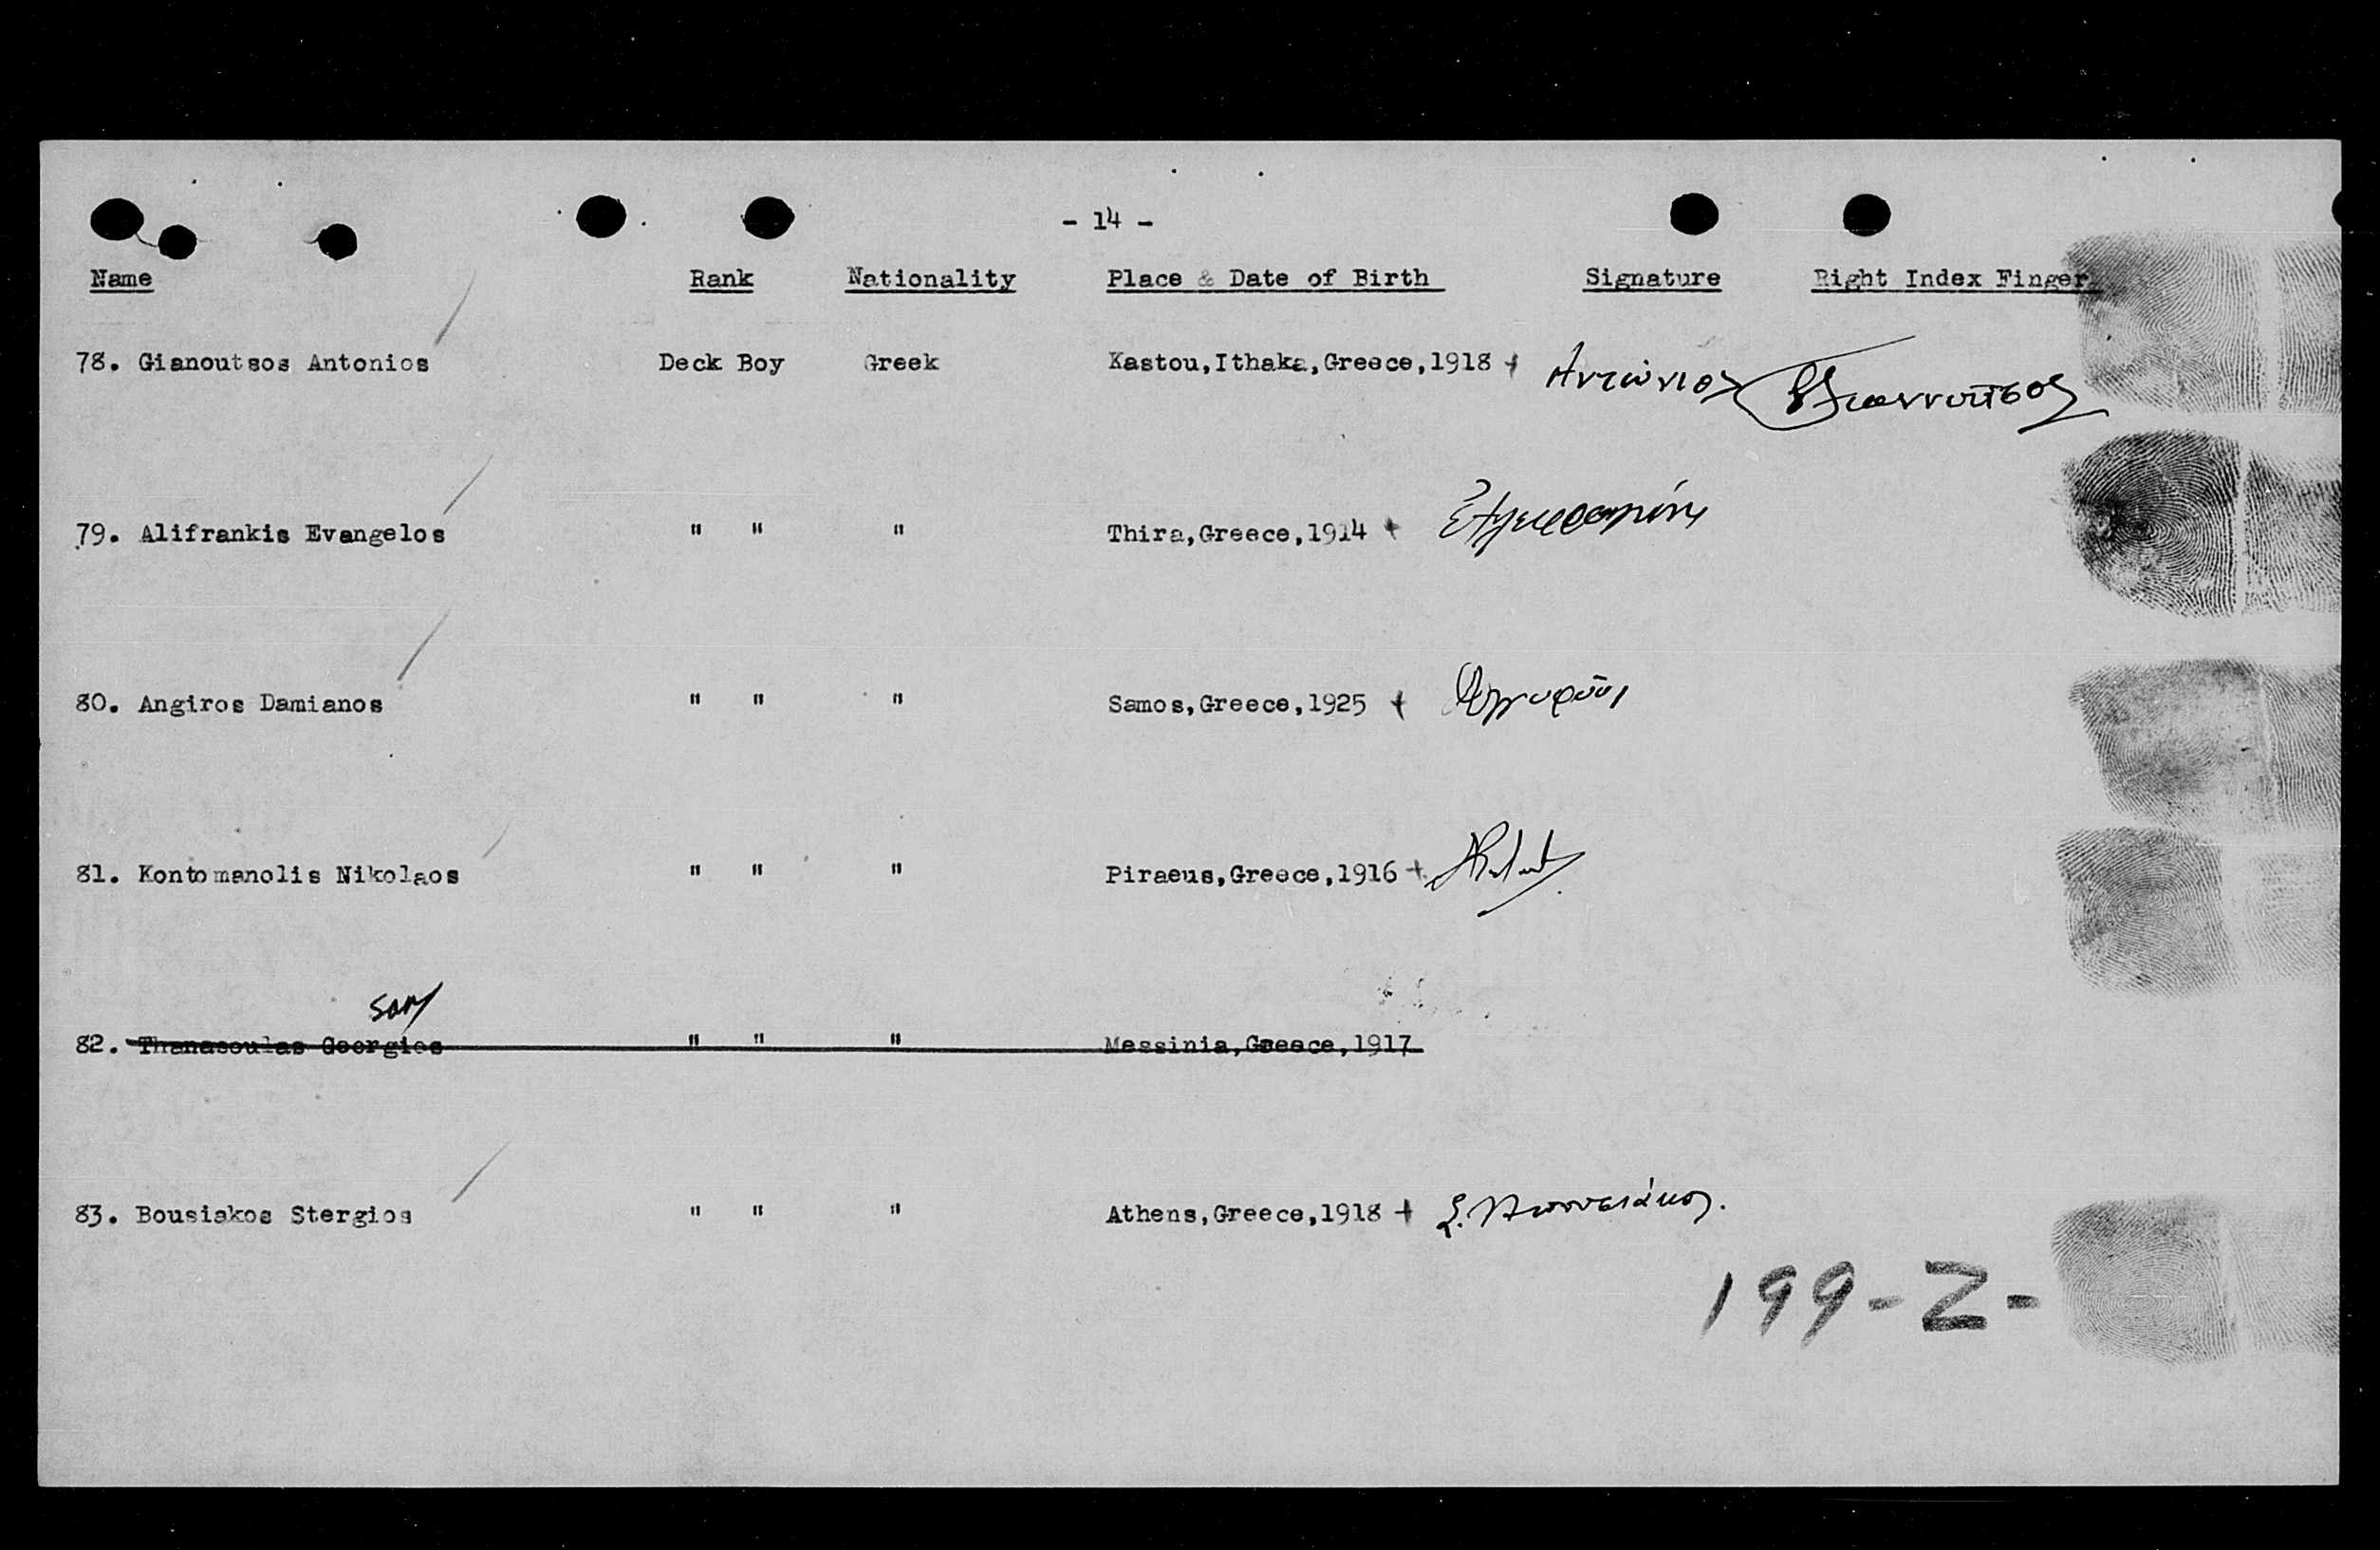 - 14 -
Name Rank Nationality Place & Date of Birth Signature Right Index Finger
78. Gianoutsos Antonios Deck Boy Greek Kastou,Ithaka,Greece,1918 + Αντώνιος Γιαννούτσος
79. Alifrankis Evangelos " " " Thira,Greece,1914 +
80. Angiros Damianos " " " Samos,Greece,1925 +
81. Kontomanolis Nikolaos " " " Piraeus,Greece,1916 +
82. Thanasoulas Georgios " " " Messinia,Greece,1917
83. Bousiakos Stergios " " " Athens,Greece,1918 + Σ. Μπουσιάκος.
199-Z-